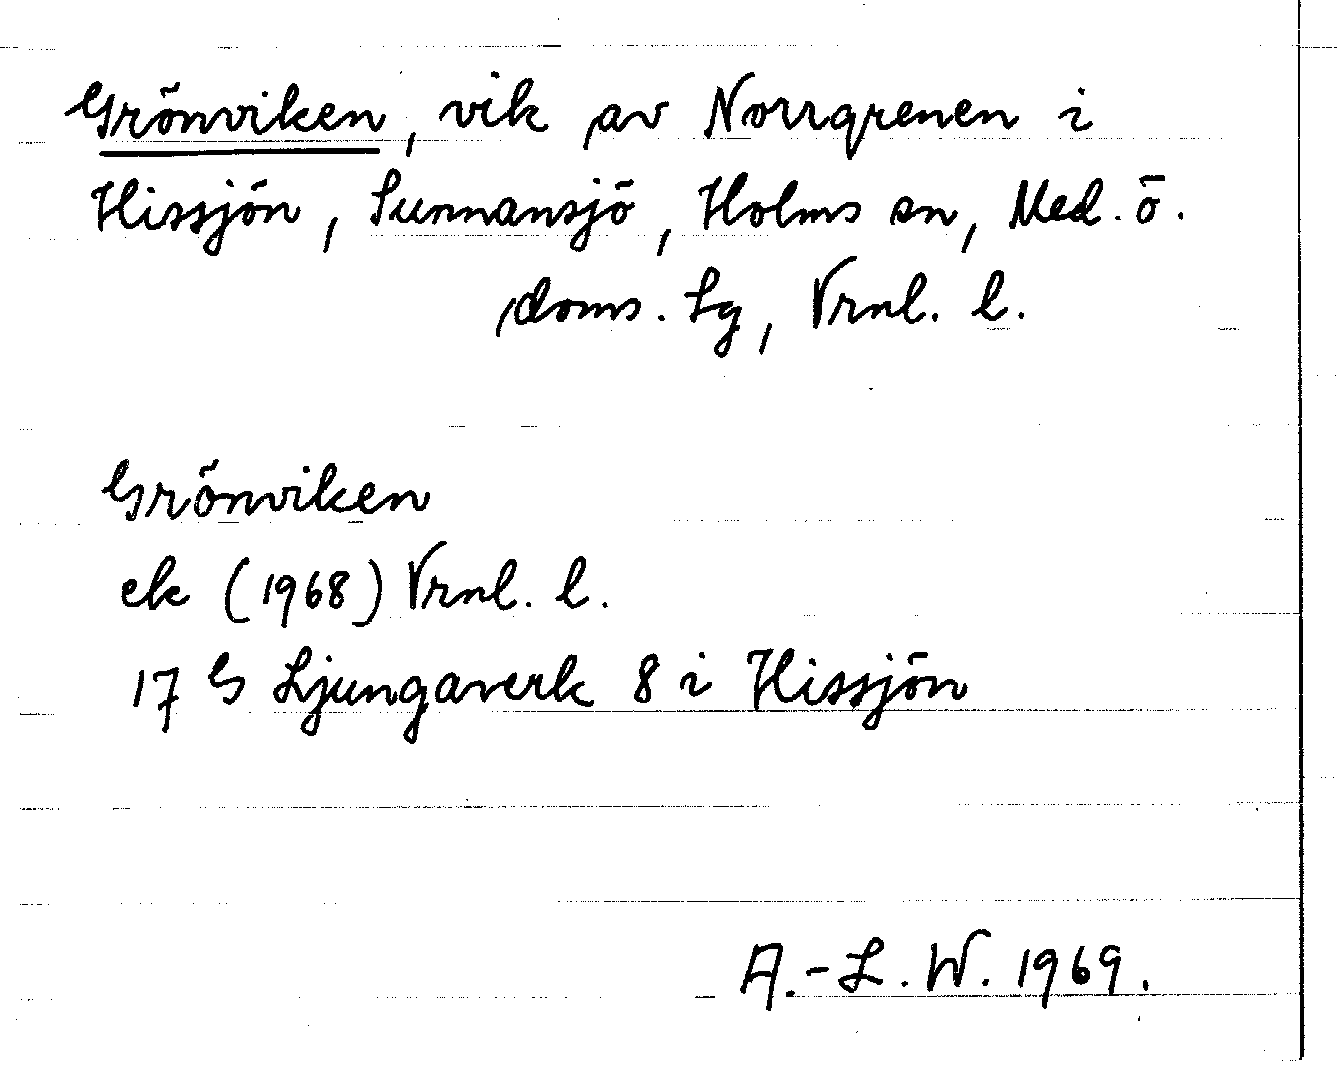 Grönviken, vik av Norrgrenen i
Hissjön, Sunnansjö, Holms sn, Med. ö.
doms. Lg, Vrnl. l.
Grönviken
ek (1968) Vrnl. l.
17 G Ljungaverk 8 i Hissjön
A.-L. W. 1969.